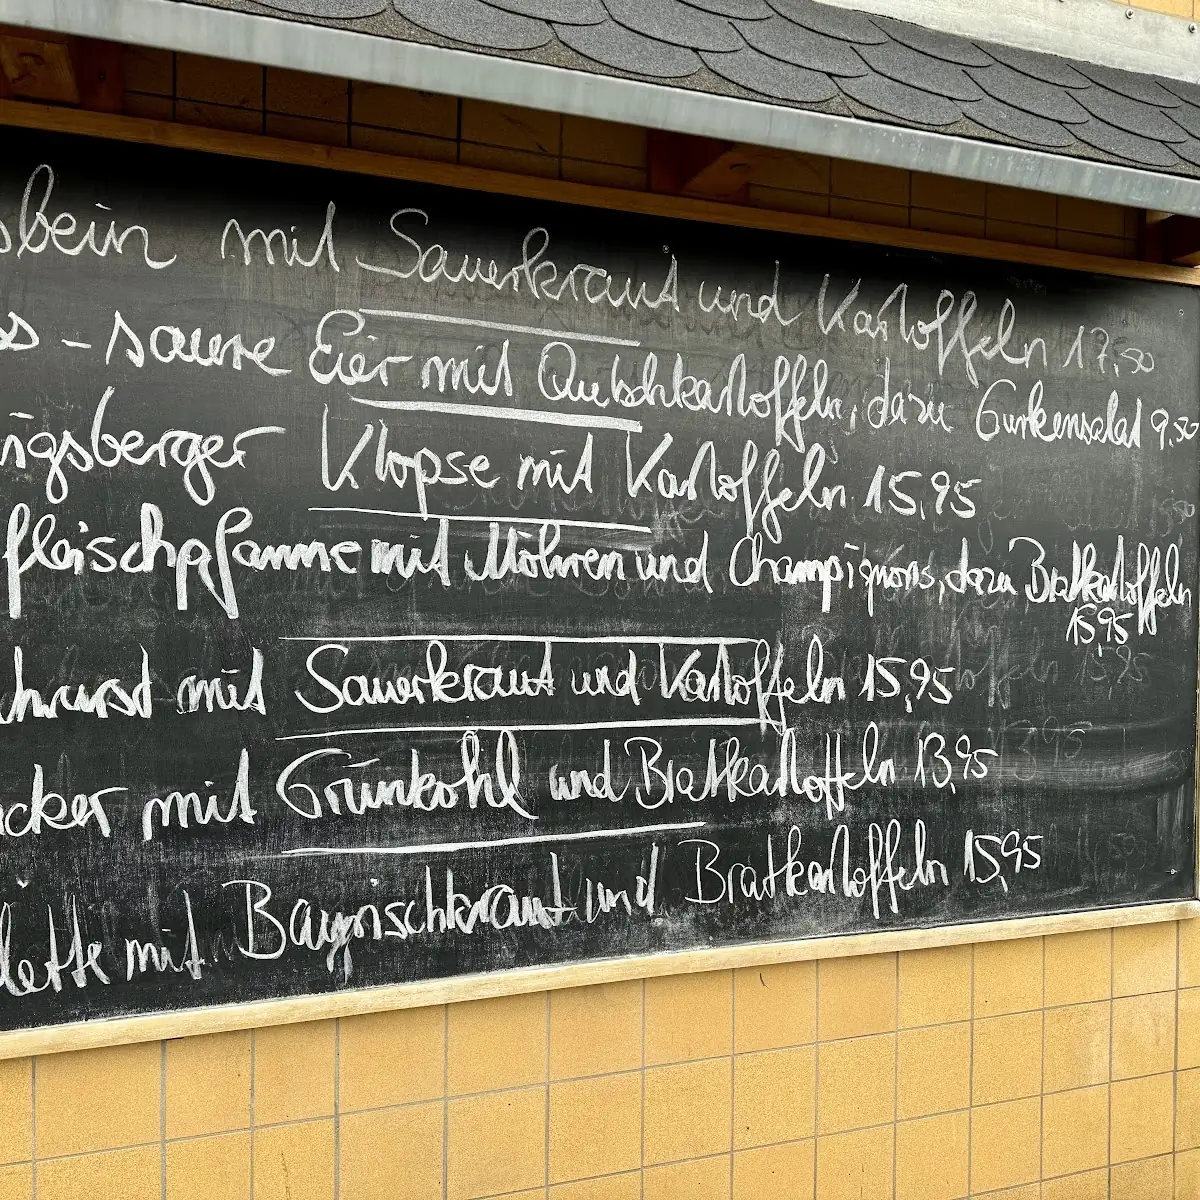 sbein mit Sauerkraut und Kartoffeln 17,50
ss - saure Eier mit Qutschkartoffeln, dazu Gurkensalat 9,50
nigsberger Klopse mit Kartoffeln 15,95
fleischpfanne mit Möhren und Champignons, dazu Bratkartoffeln
15,95
hwurst mit Sauerkraut und Kartoffeln 15,95
acker mit Grünkohl und Bratkartoffeln 13,95
lette mit Bayrischkraut und Bratkartoffeln 15,95